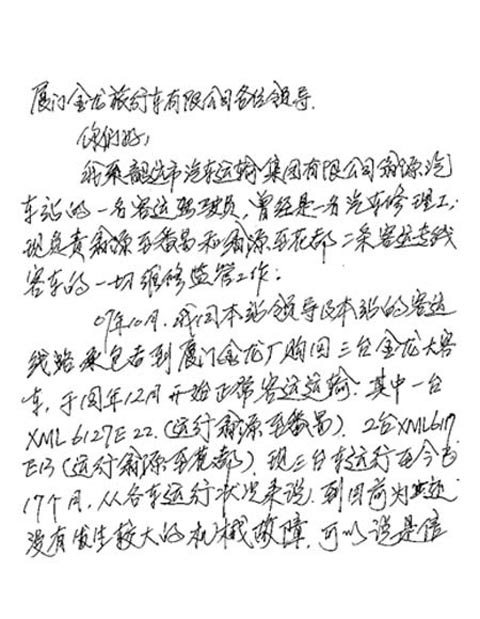 厦门金龙旅行车有限公司各位领导.
你们好,
我系韶关市汽车运输集团有限公司翁源汽
车站的一名客运驾驶员,曾经是一名汽车修理工;
现负责翁源至番禺和翁源至花都二条客运专线
客车的一切维修监管工作;
07年10月,我同本站领导及本站的客运
线路承包者到厦门金龙厂购回三台金龙大客
车,于同年12月开始正常客运运输.其中一台
XML6127E22.(运行翁源至番禺).2台XML6117
E13(运行翁源至花都).现三台车运行至今已
17个月,从各车运行状况来说.到目前为止还
没有发生较大的机械故障.可以说是信